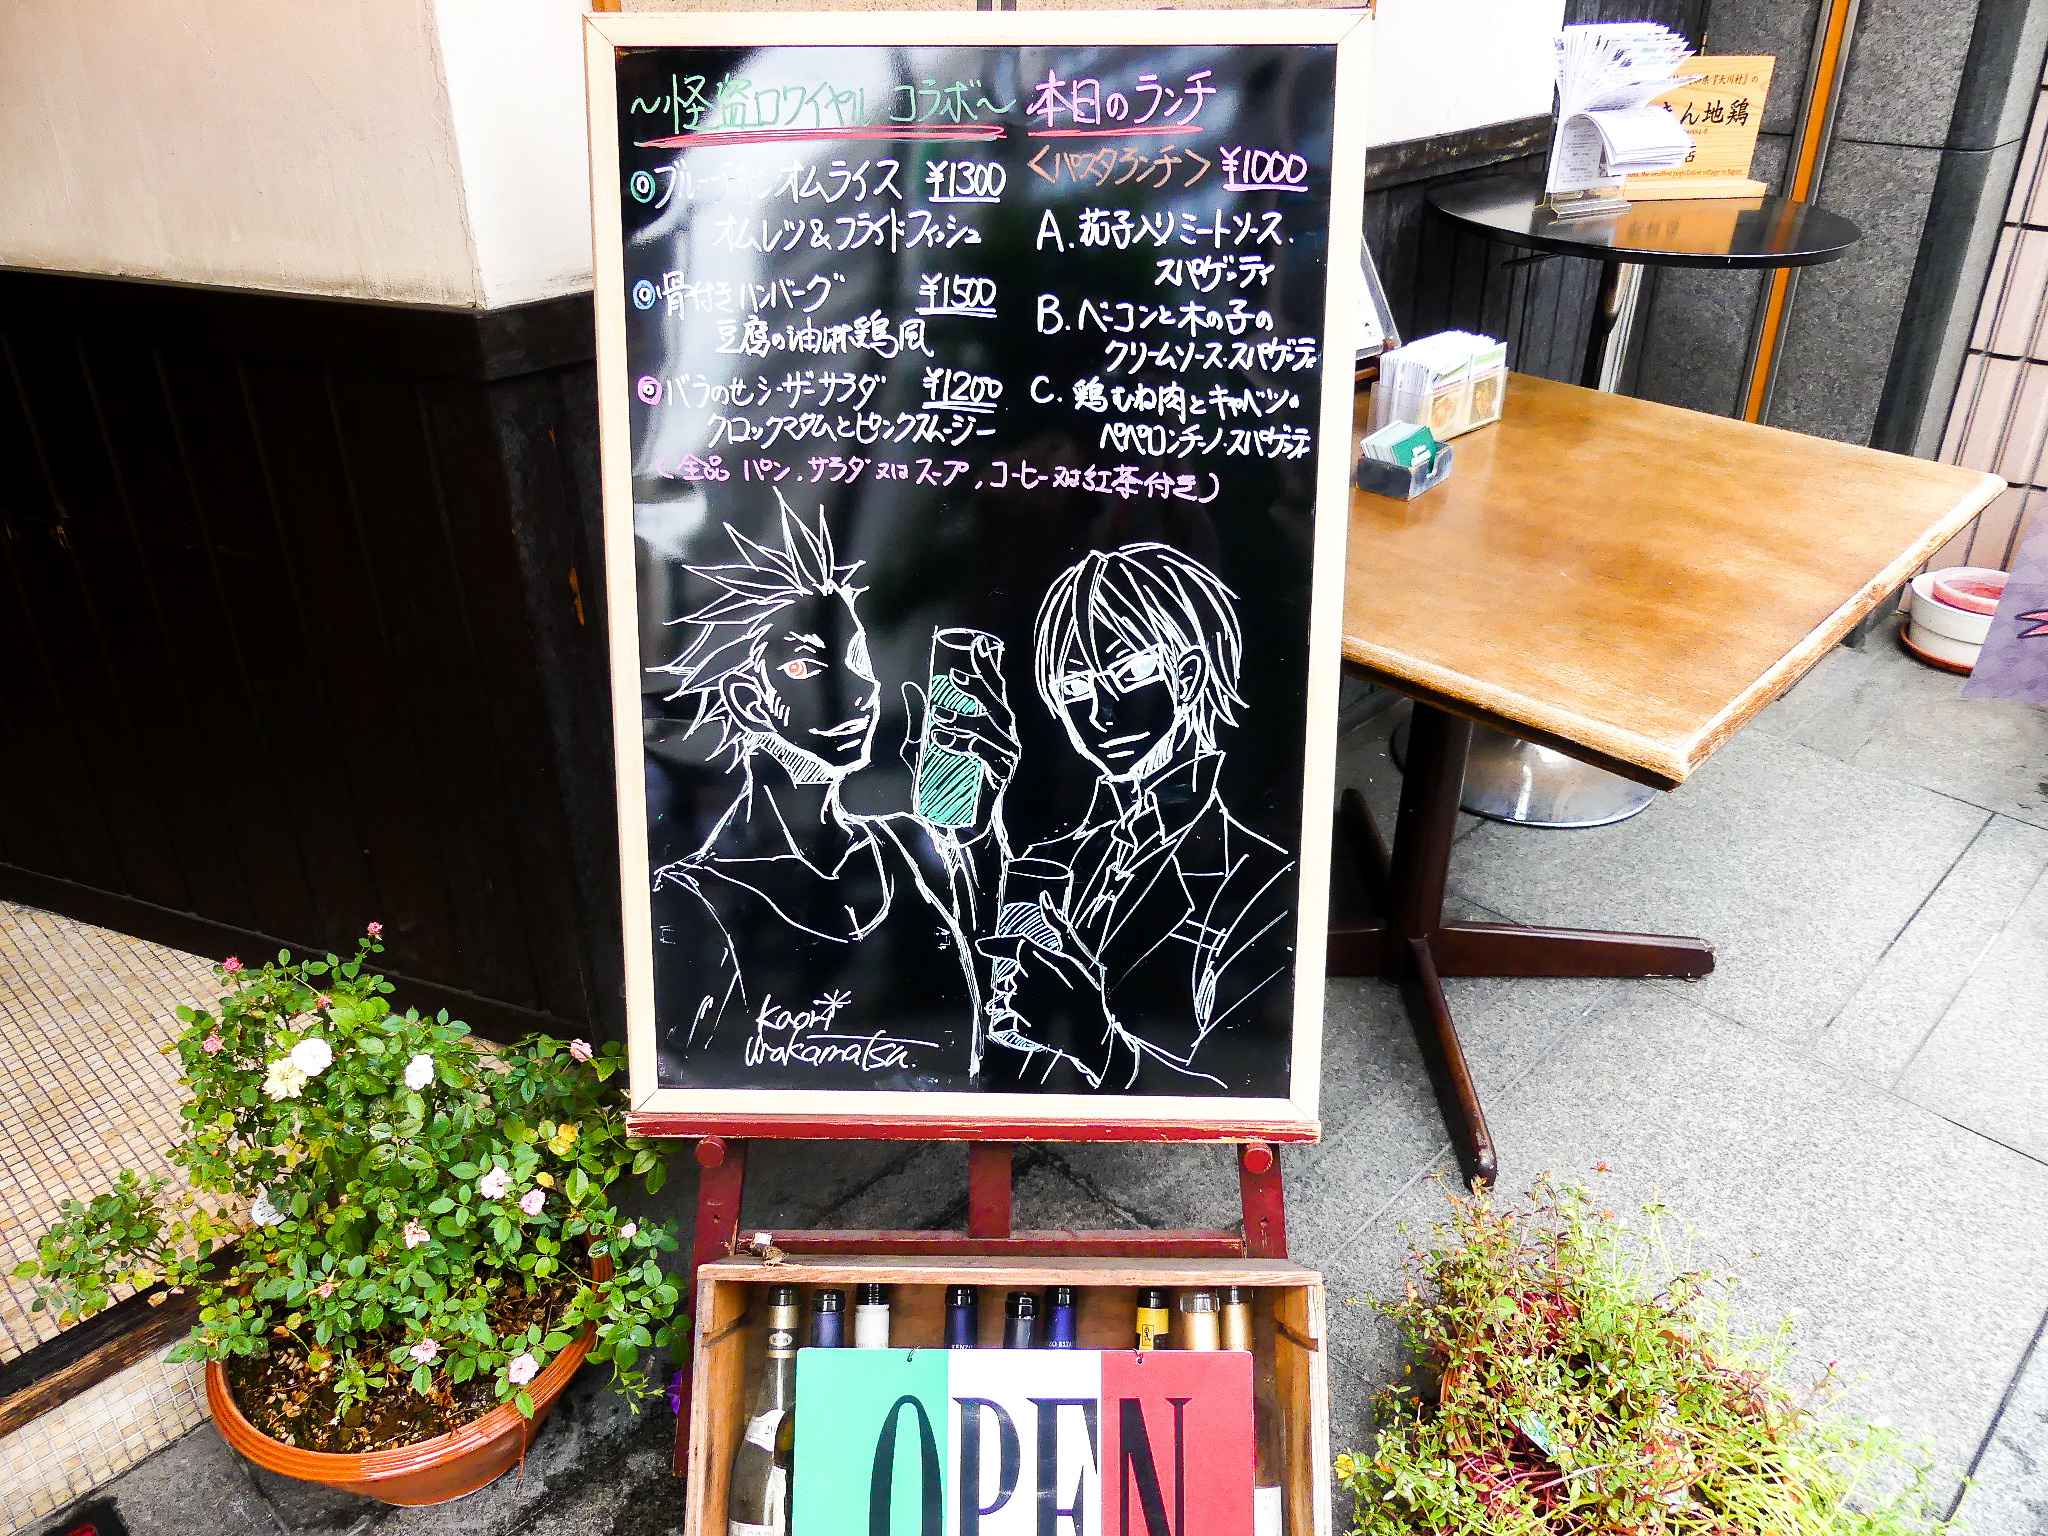 ～怪盗ロワイヤル コラボ～
◎ブルーチキンオムライス ¥1300
オムレツ&フライドフィッシュ
◎骨付きハンバーグ ¥1500
豆腐の油淋鶏風
◎バラのせシーザーサラダ ¥1200
クロックマダムとピンクスムージー
本日のランチ
<パスタランチ> ¥1000
A. 茄子入りミートソース.
スパゲッティ
B. ベーコンと木の子の
クリームソース・スパゲッティ
C. 鶏むね肉とキャベツの
ペペロンチーノ・スパゲッティ
(全品 パン, サラダ又はスープ, コーヒー又は紅茶付き)
Kaori
Wakamatsu.
OPEN
大川村」の
さん地鶏
店
the smallest population village in Japan